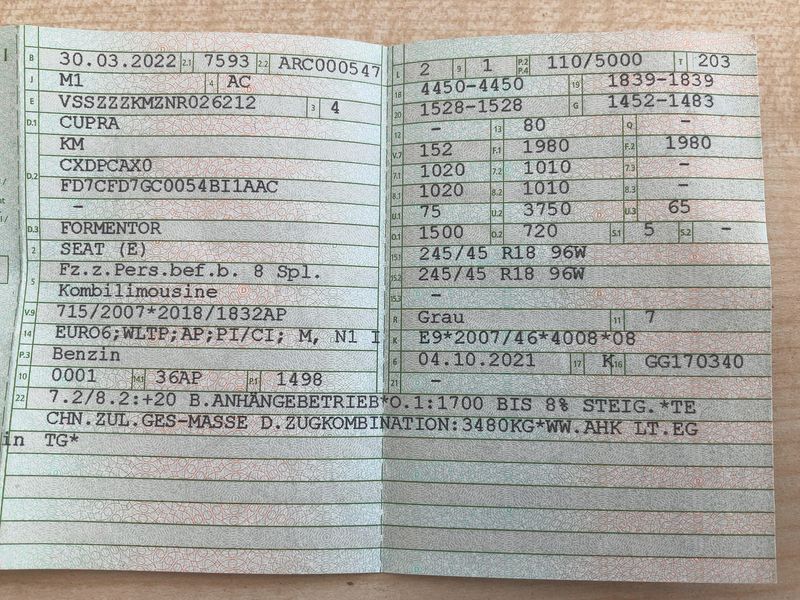 B 30.03.2022 2.1 7593 2.2 ARC000547
J M1 4 AC
E VSSZZZKMZNR026212 3 4
D.1 CUPRA
KM
D.2 CXDPCAX0
FD7CFD7GC0054BI1AAC
–
D.3 FORMENTOR
2 SEAT (E)
5 Fz.z.Pers.bef.b. 8 Spl.
Kombilimousine
V.9 715/2007*2018/1832AP
14 EURO6;WLTP;AP;PI/CI; M, N1 I
P.3 Benzin
10 0001 14.1 36AP P.1 1498
L 2 9 1 P.2 P.4 110/5000 T 203
18 4450-4450 19 1839-1839
20 1528-1528 G 1452-1483
12 – 13 80 Q –
V.7 152 F.1 1980 F.2 1980
7.1 1020 7.2 1010 7.3 –
8.1 1020 8.2 1010 8.3 –
U.1 75 U.2 3750 U.3 65
O.1 1500 O.2 720 S.1 5 S.2 –
15.1 245/45 R18 96W
15.2 245/45 R18 96W
15.3 –
R Grau 11 7
K E9*2007/46*4008*08
6 04.10.2021 17 K 16 GG170340
21 –
22 7.2/8.2:+20 B.ANHÄNGEBETRIEB*O.1:1700 BIS 8% STEIG.*TE
CHN.ZUL.GES-MASSE D.ZUGKOMBINATION:3480KG*WW.AHK LT.EG
in TG*